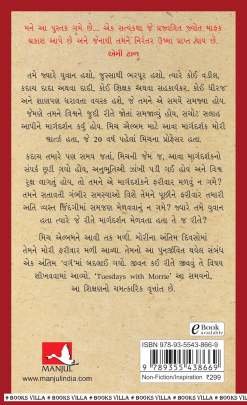 મને આ પુસ્તક ગમે છે... એક સત્યકથા જે પ્રજ્વલિત જ્યોત માફક
પ્રકાશ આપે છે અને જેનાથી તમને નિરંતર ઉષ્મા પ્રાપ્ત થાય છે.
એમી ટાન
તમે જ્યારે યુવાન હશો, જુસ્સાથી ભરપૂર હશો, ત્યારે કોઈ વડીલ,
કદાચ દાદા અથવા દાદી. કોઈ શિક્ષક અથવા સહકાર્યકર. કોઈ ધીરજ
અને શાણપણ ધરાવતા વયસ્ક હશે, જે તમને એ સમયે સમજ્યા હોય,
જેમણે તમને વિશ્વને જુદી રીતે જોતાં સમજાવ્યું હોય, સચોટ સલાહ
આપીને માર્ગદર્શન કર્યું હોય. મિચ એલ્બમ માટે આવા માર્ગદર્શક મોરી
શ્વાર્ત્ઝ હતા, જે 20 વર્ષ પહેલાં મિચના પ્રોફેસર હતા.
કદાચ તમારે પણ સમય જતાં, મિચની જેમ જ, આવા માર્ગદર્શકનો
સંપર્ક છૂટી ગયો હોય, અનુભૂતિઓ ઝાંખી પડી ગઈ હોય અને વિશ્વ
રુક્ષ લાગતું હોય, તો તમને એ માર્ગદર્શકને ફરીવાર મળવું ન ગમે?
તમને સતાવતી ગંભીર સમસ્યાઓ વિશે તેમને પૂછીને ફરીવાર તમારી
અતિ વ્યસ્ત જિંદગીમાં સમજણ મેળવવાનું ન ગમે? જ્યારે તમે યુવાન
હતા ત્યારે જે રીતે માર્ગદર્શન મેળવતા હતા તે જ રીતે?
મિચ એલ્બમને આવી તક મળી. મોરીના અંતિમ દિવસોમાં
તેમને મોરી ફરીવાર મળી આવ્યા. તેમનો આ પુનર્જીવિત થયેલ સંબંધ
એક અંતિમ 'વર્ગ'માં બદલાઈ ગયો. જીવન કઈ રીતે જીવવું તે વિષય
શીખવવામાં આવ્યો. 'Tuesdays with Morrie' આ સમયનો,
આ શિક્ષણનો ચમત્કારિક વૃત્તાંત છે.
MANJUL
www.manjulindia.com
eBook
available
ISBN 978-93-5543-866-9
9 789355 438669
Non-Fiction/Inspiration ₹299
# BOOKS VILLA # BOOKS VILLA # BOOKS VILLA # BOOKS VILLA # BOOKS VILLA #